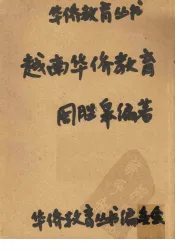 华侨教育丛书
越南华侨教育
周胜皋编著
华侨教育丛书编委会